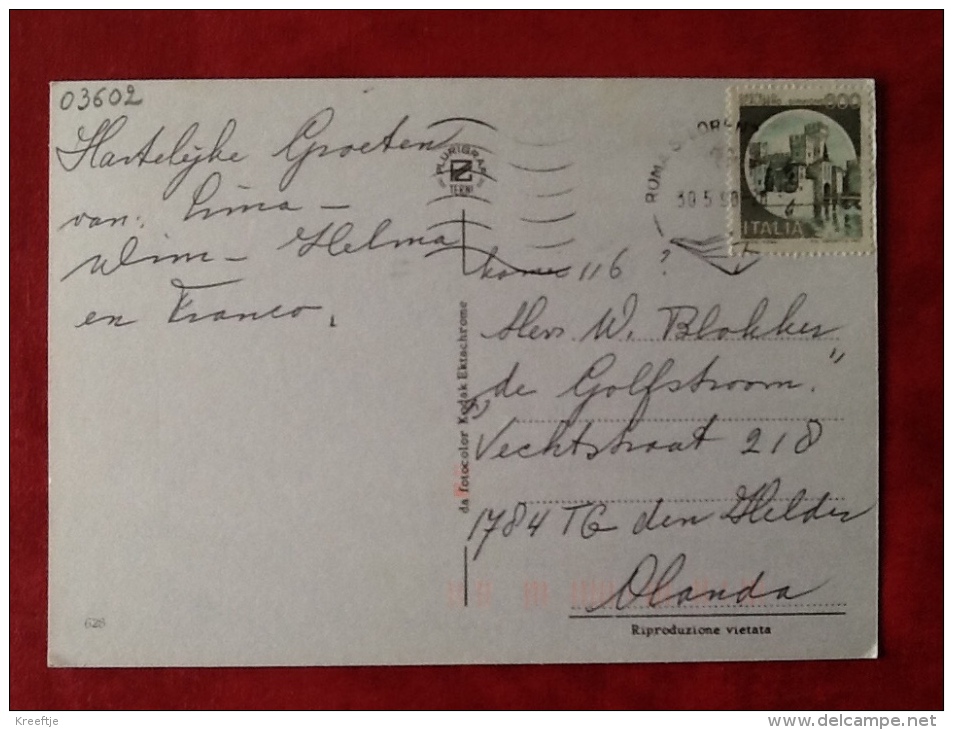 03602
Hartelijke Groeten
van: Lima -
Wim - Helma
en Franco,
PLURIGRAF
TERNI
ROMA
30 5 90
600
ITALIA
kamer 116 ?
Herr W. Blokker
„de Golfstroom."
Vechtstraat 218
1784 TG den Helder
Olanda
Riproduzione vietata
da fotocolor Kodak Ektachrome
628
Kreeftje
www.delcampe.net